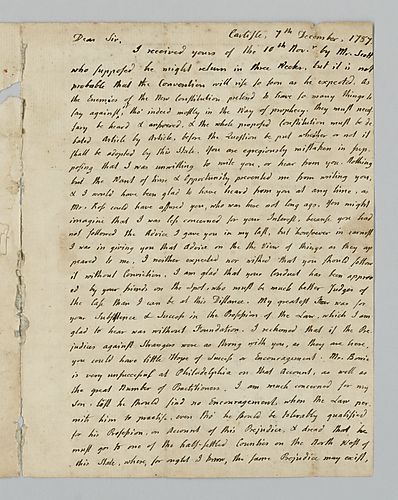 Carlisle, 7th December, 1787.
Dear Sir,
I received yours of the 10th Novr by Mr. Scott
who supposed he might return in three Weeks, but it is not
probable that the Convention will rise so soon as he expected, as
the Enemies of the New Constitution pretend to have so many things to
say against, tho' indeed mostly in the Way of prophecy: they must neces-
sary be heard & answered, & the whole proposed Constitution must be de-
bated Article by Article, before the Question be put whether or not it
shall be adopted by this State. You are egregiously mistaken in sup-
posing that I was unwilling to write you, or hear from you. Nothing
but the Want of time & Opportunity prevented me from writing you,
& I would have been glad to have heard from you at any time, as
Mr. Ross could have assured you, who was here not long ago. You might
imagine that I was less concerned for your Interest, because you had
not followed the Advice I gave you in my last, but howsoever in earnest
I was in giving you that Advice on the the View of things as they ap
peared to me, I neither expected nor wished that you should follow
it without Conviction. I am glad that your Conduct has been approv
ed by your friends on the Spot, who must be better Judges of
the Case than I can be at this Distance. My greatest Fear was for
your Subsistence & Success in the Profession of the Law, which I am
glad to hear was without Foundation. I reckoned that if the Pre
judices against Strangers were as strong with you, as they are here,
you could have little Hope of Success or Encouragement. Mr.
is very unsuccessful at Philadelphia on that Account, as well as
the great Number of Practitioners. I am much concerned for my
Son, lest he should find no Encouragement, when the Law per
mits him to practise, even tho' he should be tolerably qualified
for his Profession, on Account of this Prejudice, & dread that he
must go to one of the half-settled Counties on the North West of
this State, where, for ought I know, the same Prejudice may exist,